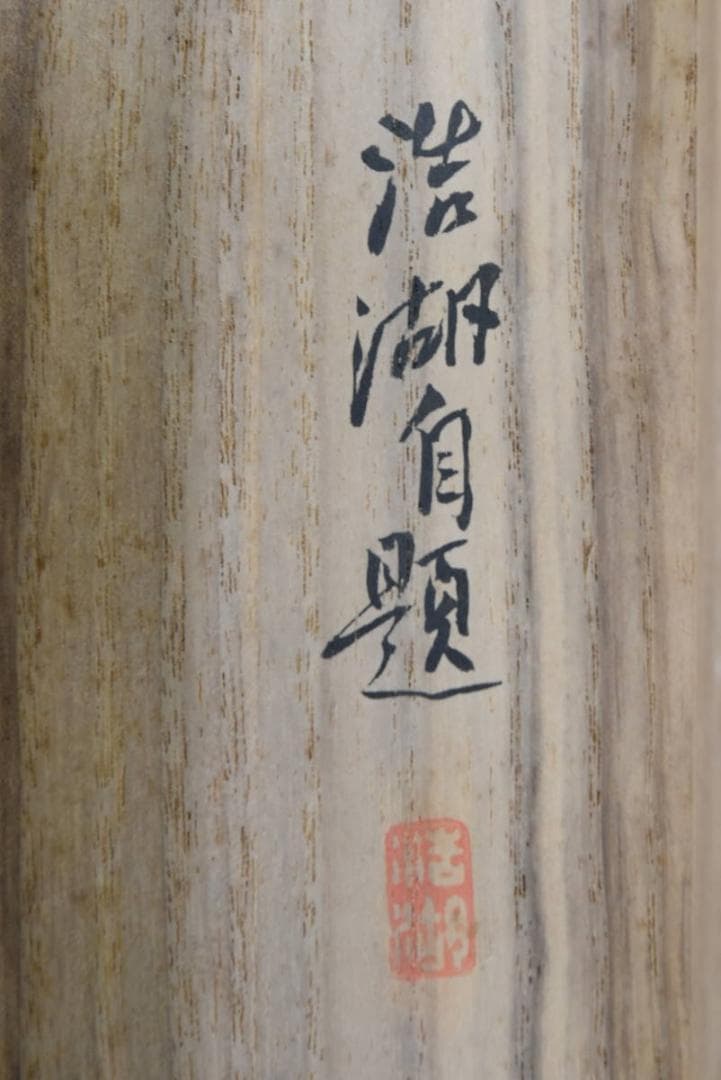 浩湖自題
浩湖